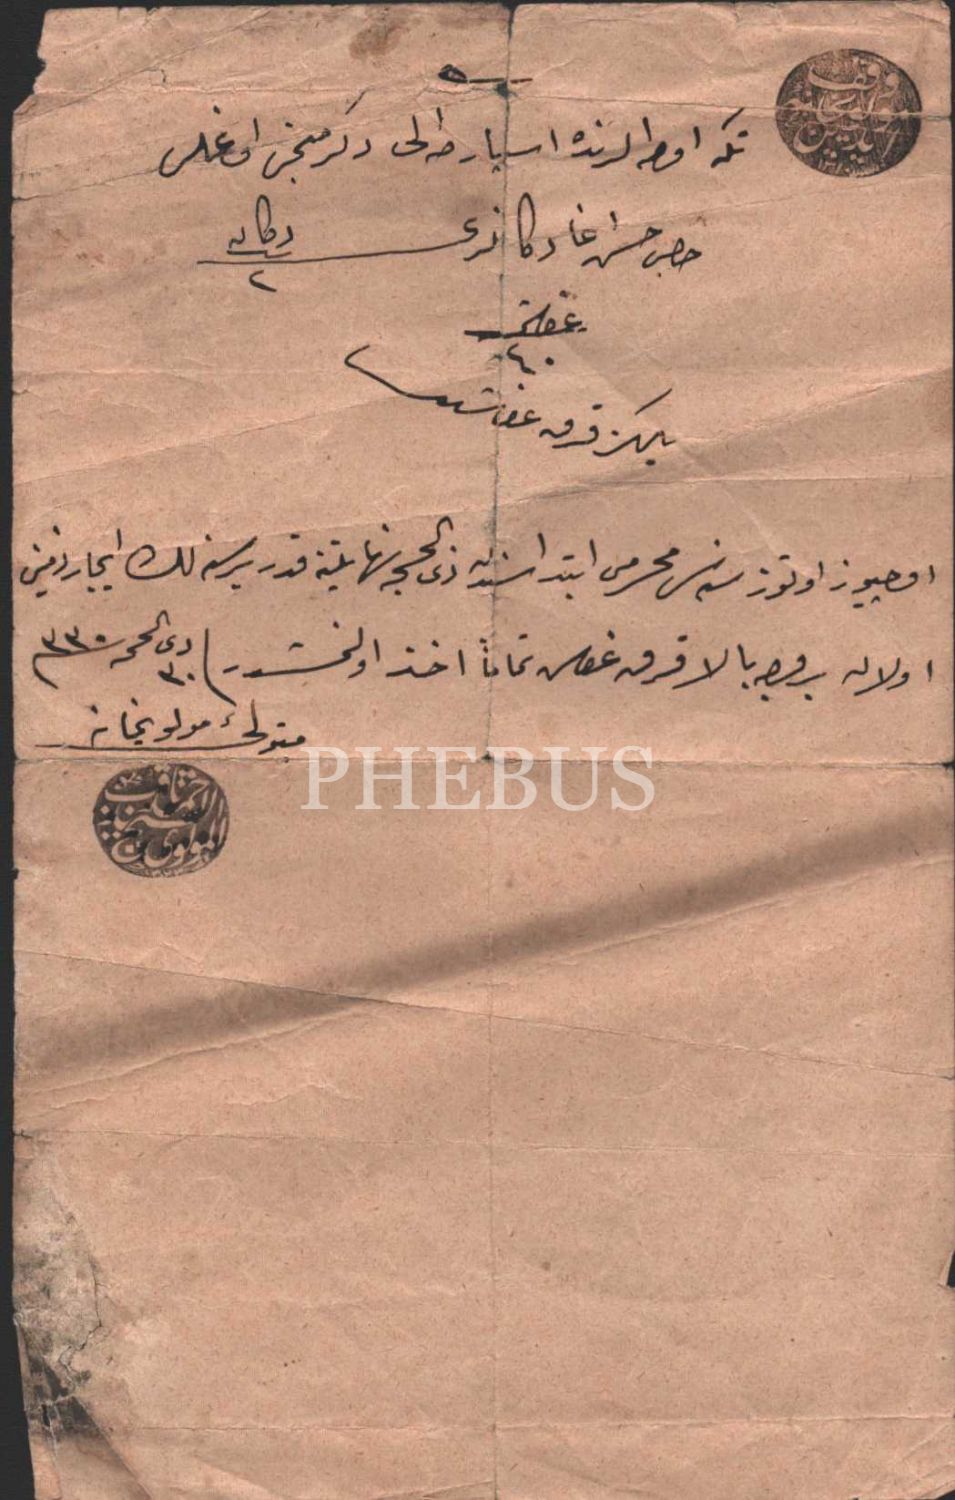 تكه اوطه لرنده اسپارطه لی دكرمنجی اوغلی
حاجی حسن اغا دكانلری
دكان
٢
غروش
٤٠
یالكز قرق غروشدر
اوچیوز اوتوز سنه سی محرمی ابتداسندن ذی الحجه نهایتنه قدر بر سنه لك ایجاره سی
اولان بروجه بالا قرق غروش تماماً اخذ اولنمشدر
ذی الحجه ٣٣٠
٣٠
متولئ مولویخانه
PHEBUS